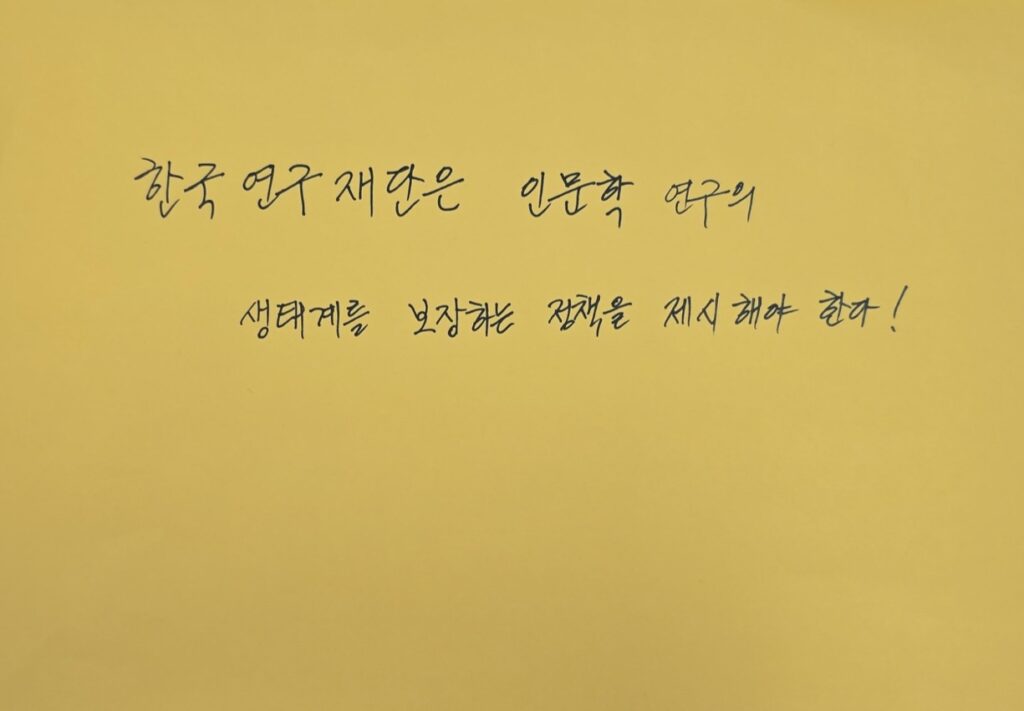 한국연구재단은 인문학 연구의
생태계를 보장하는 정책을 제시해야 한다!